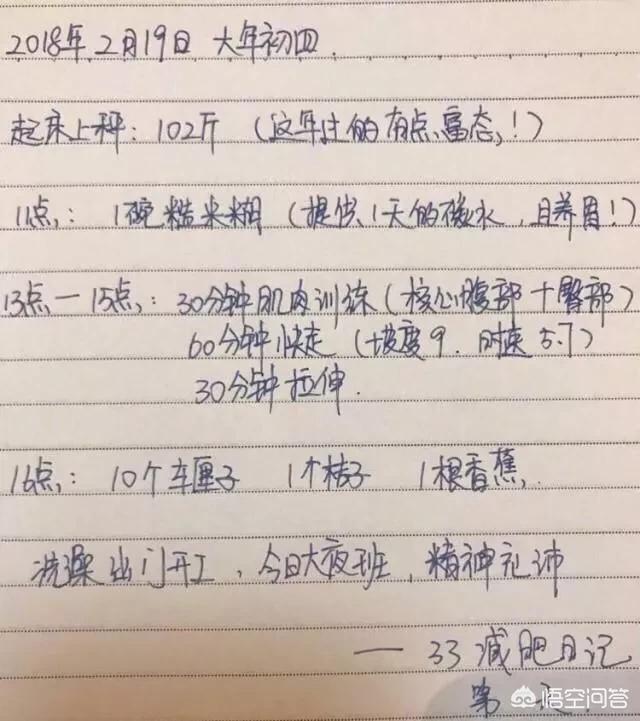 2018年2月19日 大年初四.
起床上秤：102斤（这年过的有点富态！）
11点：1碗糙米糊（提供1天的碳水，且养胃！）
13点—15点：30分钟肌肉训练（核心腹部+臀部）
60分钟快走（坡度9. 时速5.7）
30分钟拉伸.
16点：10个车厘子 1个桔子 1根香蕉.
洗澡出门开工，今日大夜班，精神充沛
—33减肥日记
第
悟空问答